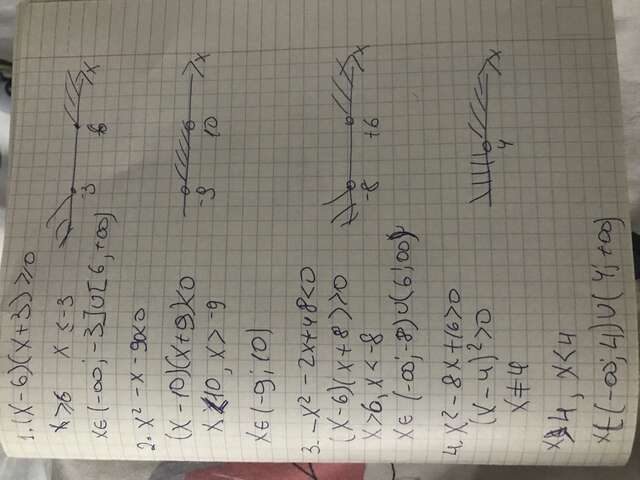 1. (x-6)(x+3)≥0
x≥6 x≤-3
-3 6 x
x∈(-∞; -3]∪[6; +∞)
2. x²-x-90<0
(x-10)(x+9)<0
x<10, x>-9
-9 10 x
x∈(-9; 10)
3. -x²-2x+48<0
(x-6)(x+8)>0
x>6, x<-8
-8 +6 x
x∈(-∞; -8)∪(6; ∞)
4. x²-8x+16>0
(x-4)²>0
x≠4
4 x
x>4, x<4
x∈(-∞; 4)∪(4; +∞)